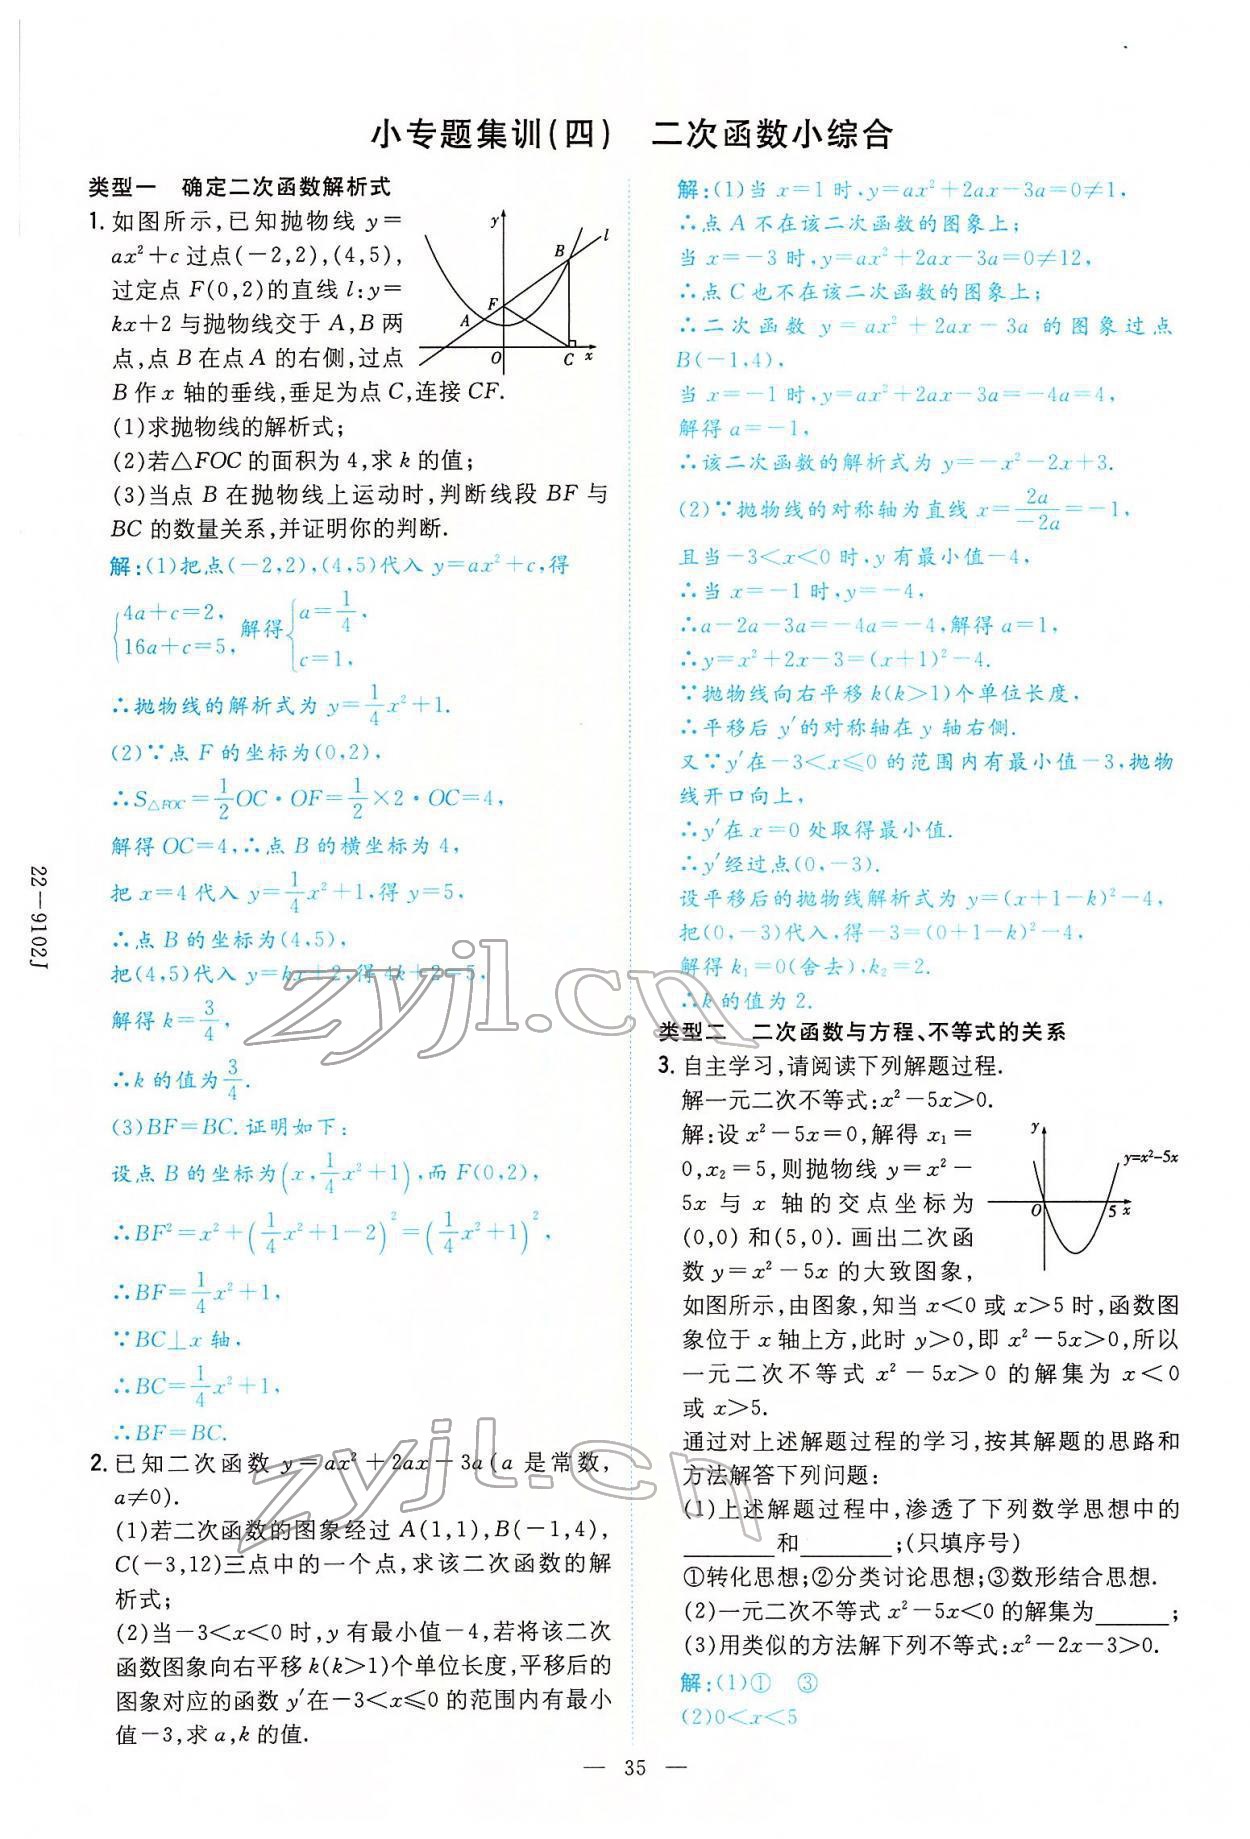 小专题集训(四)　二次函数小综合
类型一　确定二次函数解析式
1. 如图所示,已知抛物线 y=
ax²+c过点(-2,2),(4,5),
过定点 F(0,2)的直线 l:y=
kx+2 与抛物线交于 A,B 两
点,点 B 在点 A 的右侧,过点
B 作 x 轴的垂线,垂足为点 C,连接 CF.
(1)求抛物线的解析式;
(2)若△FOC 的面积为 4,求 k 的值;
(3)当点 B 在抛物线上运动时,判断线段 BF 与
BC 的数量关系,并证明你的判断.
y
B
l
F
A
O
C
x
解:(1)把点(-2,2),(4,5)代入 y=ax²+c,得
{4a+c=2, 16a+c=5, 解得 {a=1/4, c=1,
∴抛物线的解析式为 y=1/4x²+1.
(2)∵点 F 的坐标为(0,2),
∴S△FOC=1/2OC·OF=1/2×2·OC=4,
解得 OC=4,∴点 B 的横坐标为 4,
把 x=4 代入 y=1/4x²+1,得 y=5,
∴点 B 的坐标为(4,5),
把(4,5)代入 y=kx+2,得 4k+2=5,
解得 k=3/4,
∴k 的值为3/4.
(3)BF=BC.证明如下:
设点 B 的坐标为(x,1/4x²+1),而 F(0,2),
∴BF²=x²+(1/4x²+1-2)²=(1/4x²+1)²,
∴BF=1/4x²+1,
∵BC⊥x 轴,
∴BC=1/4x²+1,
∴BF=BC.
2. 已知二次函数 y=ax²+2ax-3a(a 是常数,
a≠0).
(1)若二次函数的图象经过 A(1,1),B(-1,4),
C(-3,12)三点中的一个点,求该二次函数的解
析式;
(2)当-3<x<0 时,y 有最小值-4,若将该二次
函数图象向右平移 k(k>1)个单位长度,平移后的
图象对应的函数 y′在-3<x≤0 的范围内有最小
值-3,求 a,k 的值.
解:(1)当 x=1 时,y=ax²+2ax-3a=0≠1,
∴点 A 不在该二次函数的图象上;
当 x=-3 时,y=ax²+2ax-3a=0≠12,
∴点 C 也不在该二次函数的图象上;
∴二次函数 y=ax²+2ax-3a 的图象过点
B(-1,4),
当 x=-1 时,y=ax²+2ax-3a=-4a=4,
解得 a=-1,
∴该二次函数的解析式为 y=-x²-2x+3.
(2)∵抛物线的对称轴为直线 x=2a/-2a=-1,
且当-3<x<0 时,y 有最小值-4,
∴当 x=-1 时,y=-4,
∴a-2a-3a=-4a=-4,解得 a=1,
∴y=x²+2x-3=(x+1)²-4.
∵抛物线向右平移 k(k>1)个单位长度,
∴平移后 y′的对称轴在 y 轴右侧.
又∵y′在-3<x≤0 的范围内有最小值-3,抛物
线开口向上,
∴y′在 x=0 处取得最小值.
∴y′经过点(0,-3).
设平移后的抛物线解析式为 y=(x+1-k)²-4,
把(0,-3)代入,得-3=(0+1-k)²-4,
解得 k₁=0(舍去),k₂=2.
∴k 的值为 2.
类型二　二次函数与方程、不等式的关系
3. 自主学习,请阅读下列解题过程.
解一元二次不等式:x²-5x>0.
解:设 x²-5x=0,解得 x₁=
0,x₂=5,则抛物线 y=x²-
5x 与 x 轴的交点坐标为
(0,0) 和(5,0). 画出二次函
数 y=x²-5x 的大致图象,
如图所示,由图象,知当 x<0 或 x>5 时,函数图
象位于 x 轴上方,此时 y>0,即 x²-5x>0,所以
一元二次不等式 x²-5x>0 的解集为 x<0
或 x>5.
y
y=x²-5x
O
5
x
通过对上述解题过程的学习,按其解题的思路和
方法解答下列问题:
(1)上述解题过程中,渗透了下列数学思想中的
______和______;(只填序号)
①转化思想;②分类讨论思想;③数形结合思想.
(2)一元二次不等式 x²-5x<0 的解集为______;
(3)用类似的方法解下列不等式:x²-2x-3>0.
解:(1)①　③
(2)0<x<5
— 35 —
22—9102J
zyjl.cn
zyjl.cn